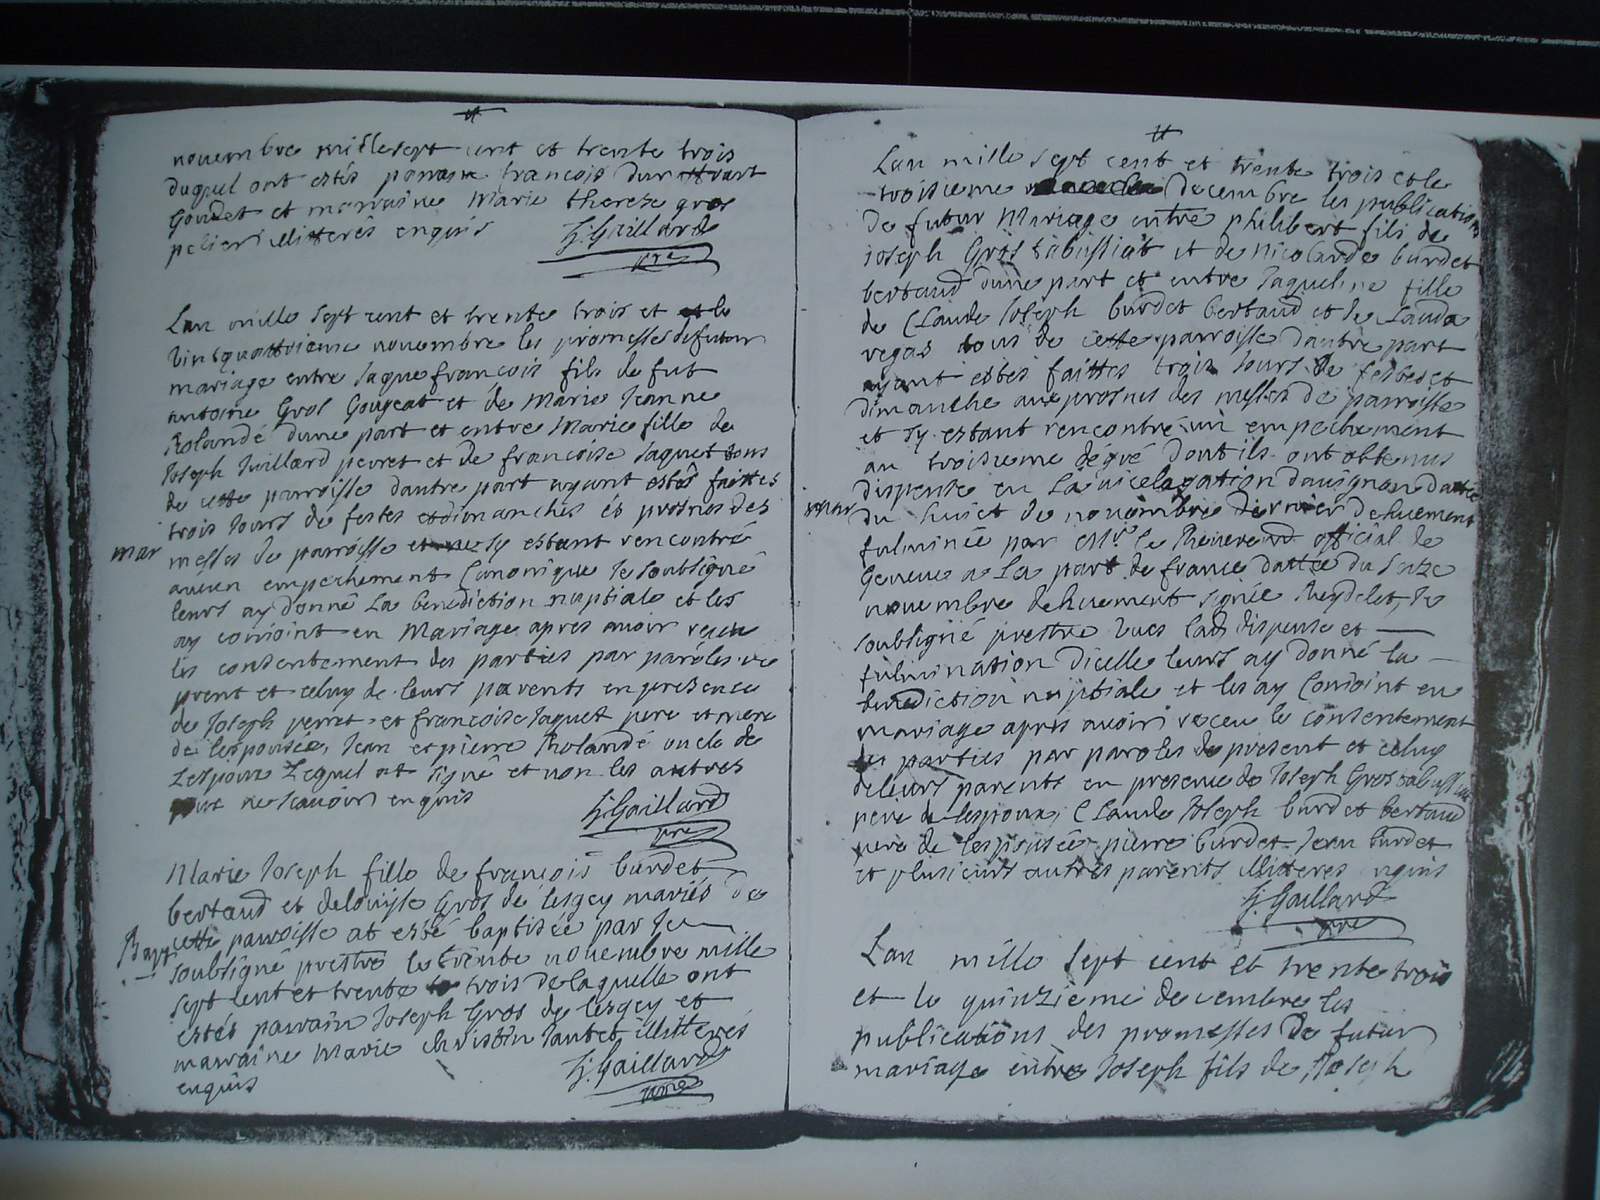 novembre mille sept cent et trente trois
duquel ont estés parrain francois
Goudet et marraine Marie therese gros
pelier illitterés enquis G: Gaillard
pre
Lan mille sept cent et trente trois et le
vintquattrieme novembre les promesses de futur
mariage entre Jaque francois fils de fut
antoine Gros Gougeat et de Marie Jeanne
Rolandé dune part et entre Marie fille de
Joseph Juillard perret et de francoise Jaquet tous
de cette parroisse dautre part ayant estés faittes
trois Jours de festes et dimanches és prosnes des
mar
messes de parroisse et ne sy estant rencontré
aucun empechement Canonique Je soubsigné
leurs ay donné La benediction nuptiale et les
ay conjoint en Mariage apres avoir receu
les consentement des parties par paroles de
prent et celuy de leurs parents en presence
de Joseph perret et francoise Jaquet pere et mere
de lespousée, Jean et pierre Rolandé oncle de
Lespoux Lequel at signé et non les autres
pour ne scavoir enquis
G: Gaillard
pre
Marie Joseph fille de francois burdet
bertaud et delouyse Gros de lesgey mariés de
Bapt
cette parroisse at esté baptisée par Je
soubsigné prestre le trente novembre mille
sept cent et trente trois de laquelle ont
estés parrain Joseph Gros de lesgey et
marraine Marie christin illitterés
enquis G: Gaillard
pre
Lan mille sept cent et trente trois et le
troisieme decembre les publications
de futur Mariage entre philibert fils de
joseph Gros sabussiat et de Nicolarde burdet
bertaud dune part et entre Jaqueline fille
de Claude Joseph burdet bertaud et de Lauda
vegas tous de cette parroisse dautre part
ayant estés faittes trois Jours de festes et
dimanche aux prosnes des messes de parroisse
et sy estant rencontré un empechement
au troisieme dégré dont ils ont obtenus
dispense en La vicelegation davignon datée
mar
du huict de novembre dernier dehuement
fulminée par le Reverend official de
Geneve a La part de france dattée du saze
novembre dehuement signée Reydelet, Je
soubsigné prestre veus lad dispense et
fulmination dicelle leurs ay donné la
benediction nuptiale et les ay Conjoint en
mariage apres avoir receu le consentement
des parties par paroles de present et celuy
de leurs parents en presence de Joseph Gros sabussiat
pere de lespoux, Claude Joseph burdet bertaud
pere de lespousée pierre burdet Jean burdet
et plusieurs autres parents illitteres nquis
G: Gaillard
pre
Lan mille sept cent et trente trois
et le quinzieme decembre les
publications des promesses de futur
mariage entre Joseph fils de Joseph